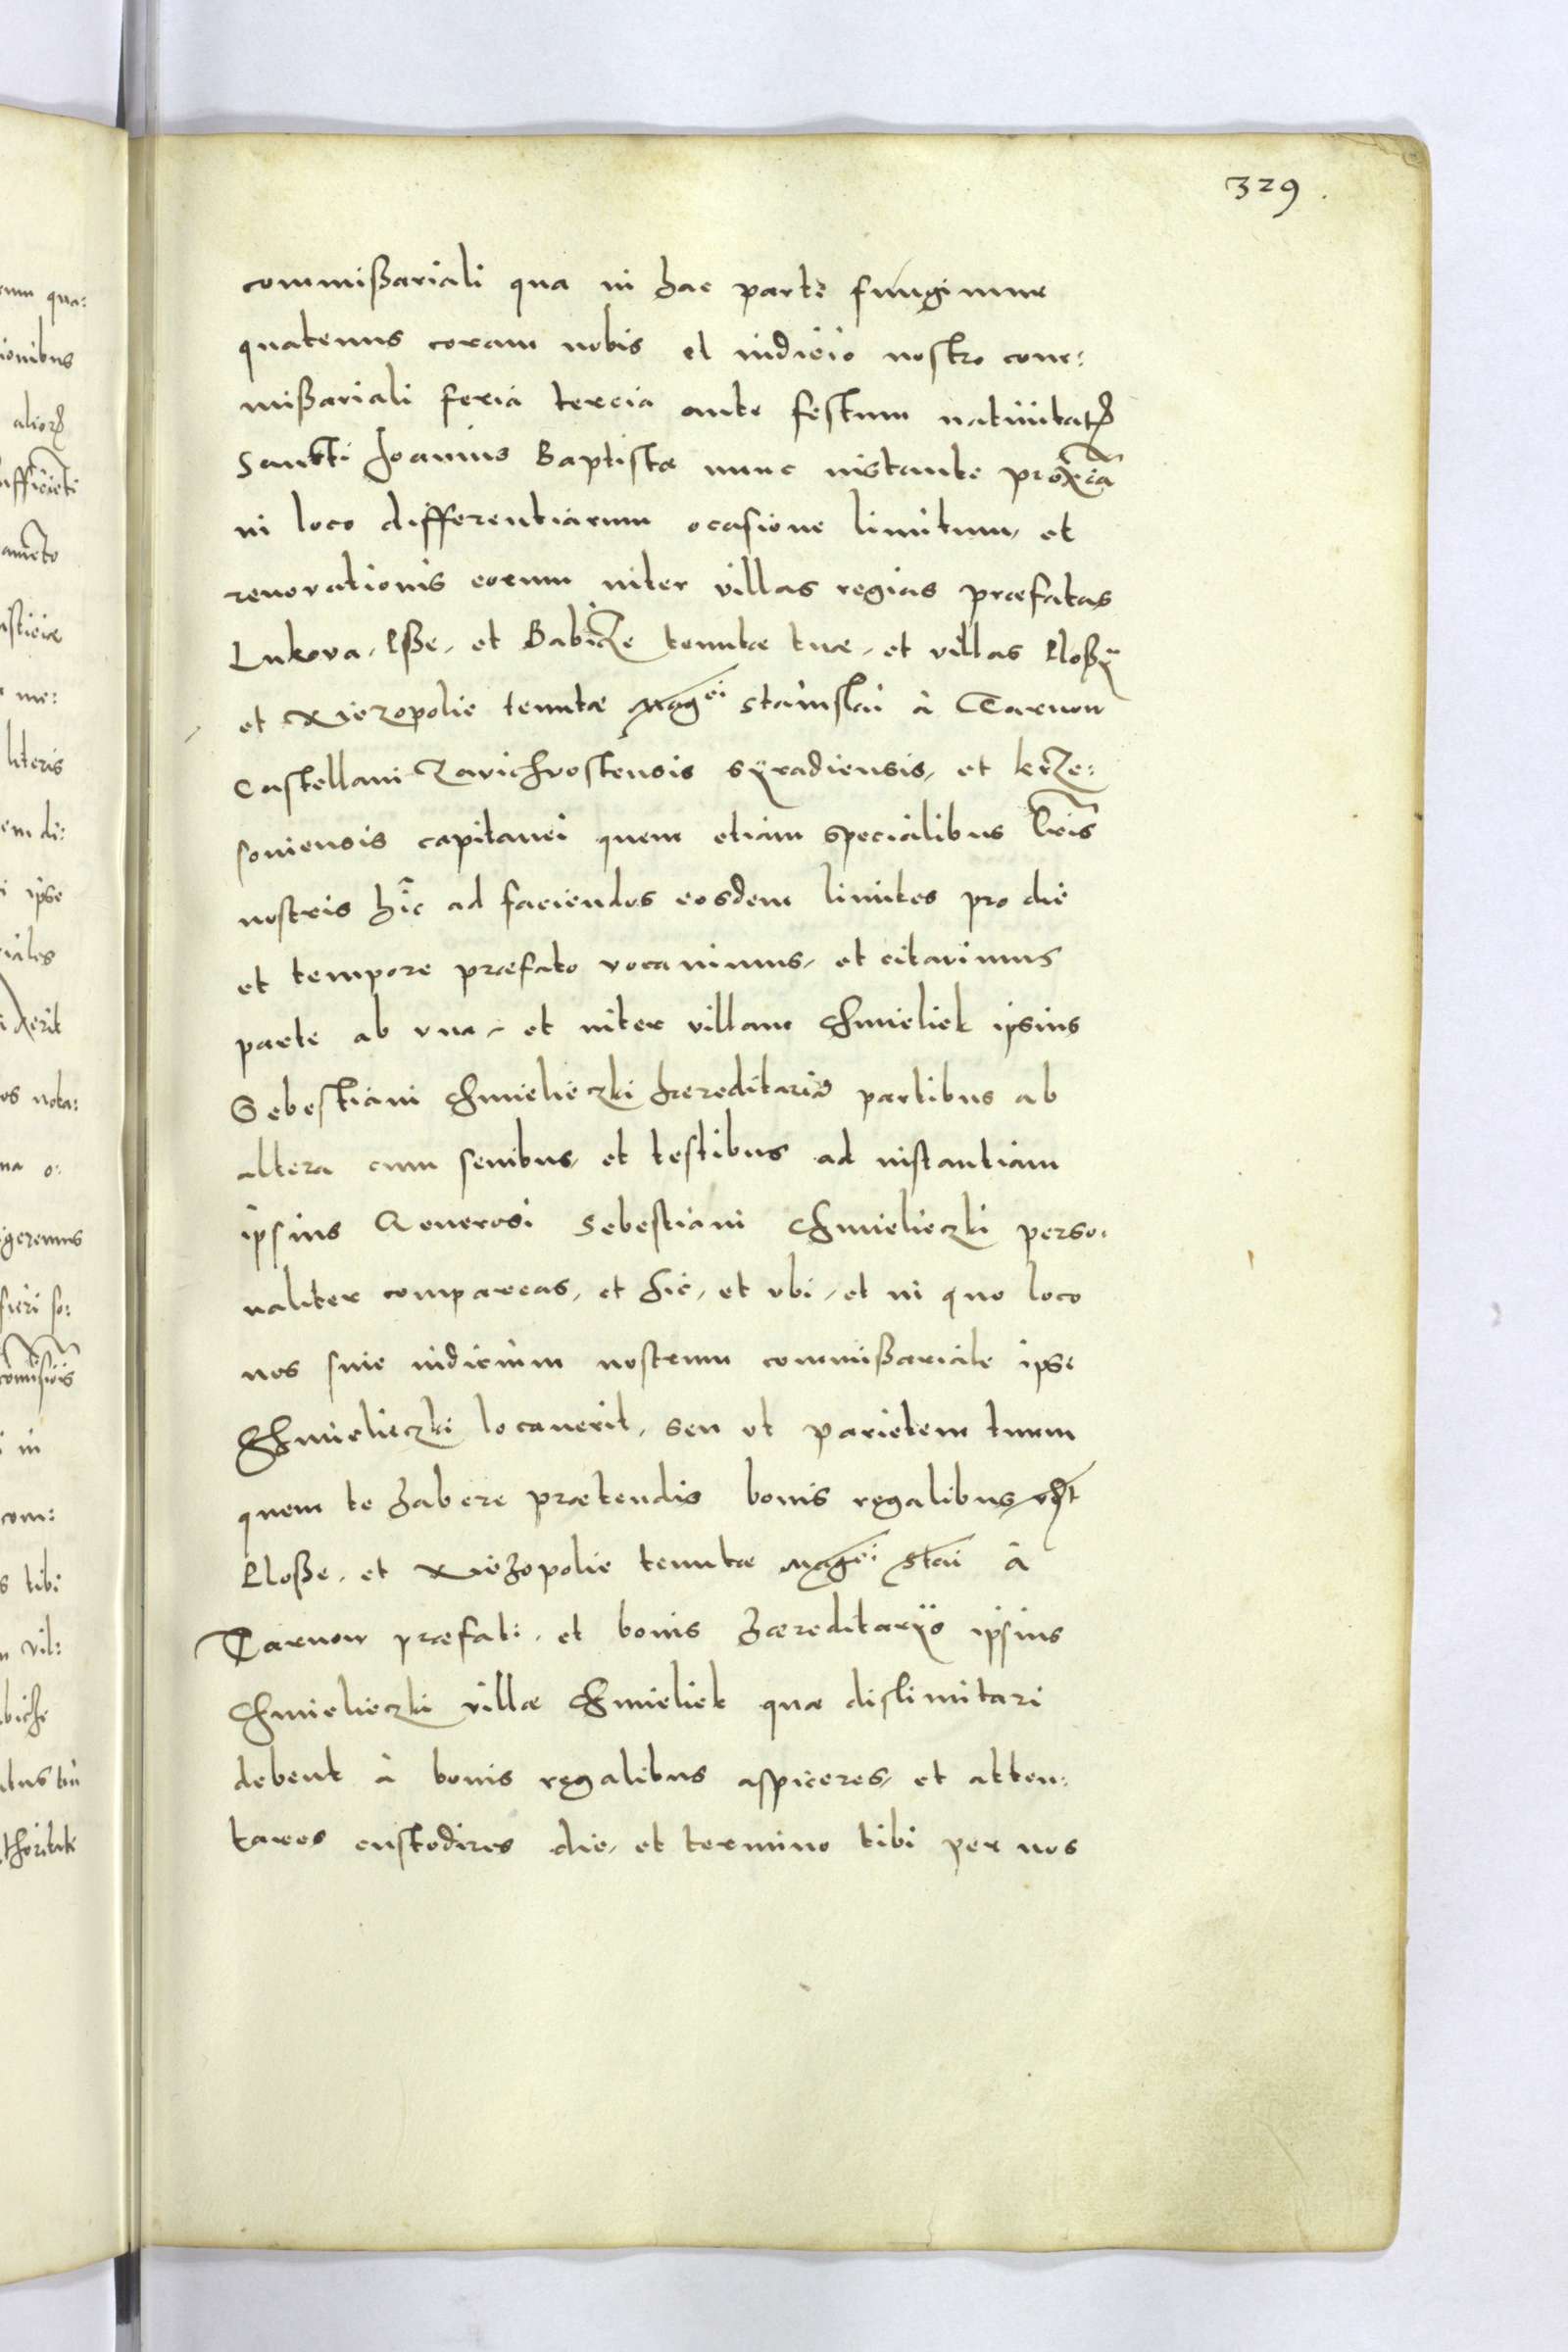 329.
commißariali qua in hac parte fungimur
quatenus coram nobis et iudicio nostro com:
mißariali feria tercia ante festum natiuitat̃
Sancti Joannis Baptistæ nunc instante proxĩa
in loco differentiarum ocasione limitum, et
renovationis eorum inter villas regias præfatas
Lukova, Lße, et Babicze tenutæ tuæ, et villas Kloßӱ
et Xiezopolie tenutæ Magci Stanislai à Tarnow
Castellani Zavichvostensis Sӱradiensis, et krze:
soviensis capitanei quem etiam specialibus Lr̃is
nostris hĩc ad faciendos eosdem limites pro die
et tempore præfato vocauimus, et citavimus
parte ab vna, et inter villam Chmieliek ipsius
Sebestiani Chmielieczki hereditariã partibus ab
altera cum senibus, et testibus ad instantiam
ipsius Generosi Sebestiani Chmielieczki perso:
naliter compareas, et hic, et vbi, et in quo loco
nos siue iudicium nostrum commißariale ipse
Chmielieczki locauerit, seu vt parietem tuum
quem te habere prætendis bonis regalibus, vt
Kloße, et Xiezopolie tenutæ Magci Stai à
Tarnow præfati, et bonis hæreditarӱs ipsius
Chmielieczki villæ Chmieliek quæ dislimitari
debent à bonis regalibus aspiceres, et atten:
tares custodires die, et termino tibi per nos